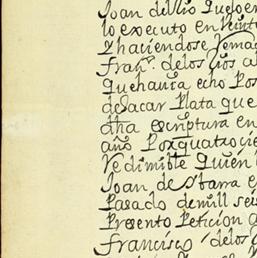 Joan del Rio que lo en
lo executo en Veinte
Y haciendose Rema
franco. de los rios a
que hauia echo Pos
de sacar Plata que
dha escriptura en
año Por quatro cie
Redimible Quien
Joan de Sbarra e
Pasado de mill sei
Presento Peticion a
francisco de los